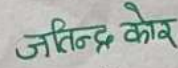 जतिन्द्र कोर